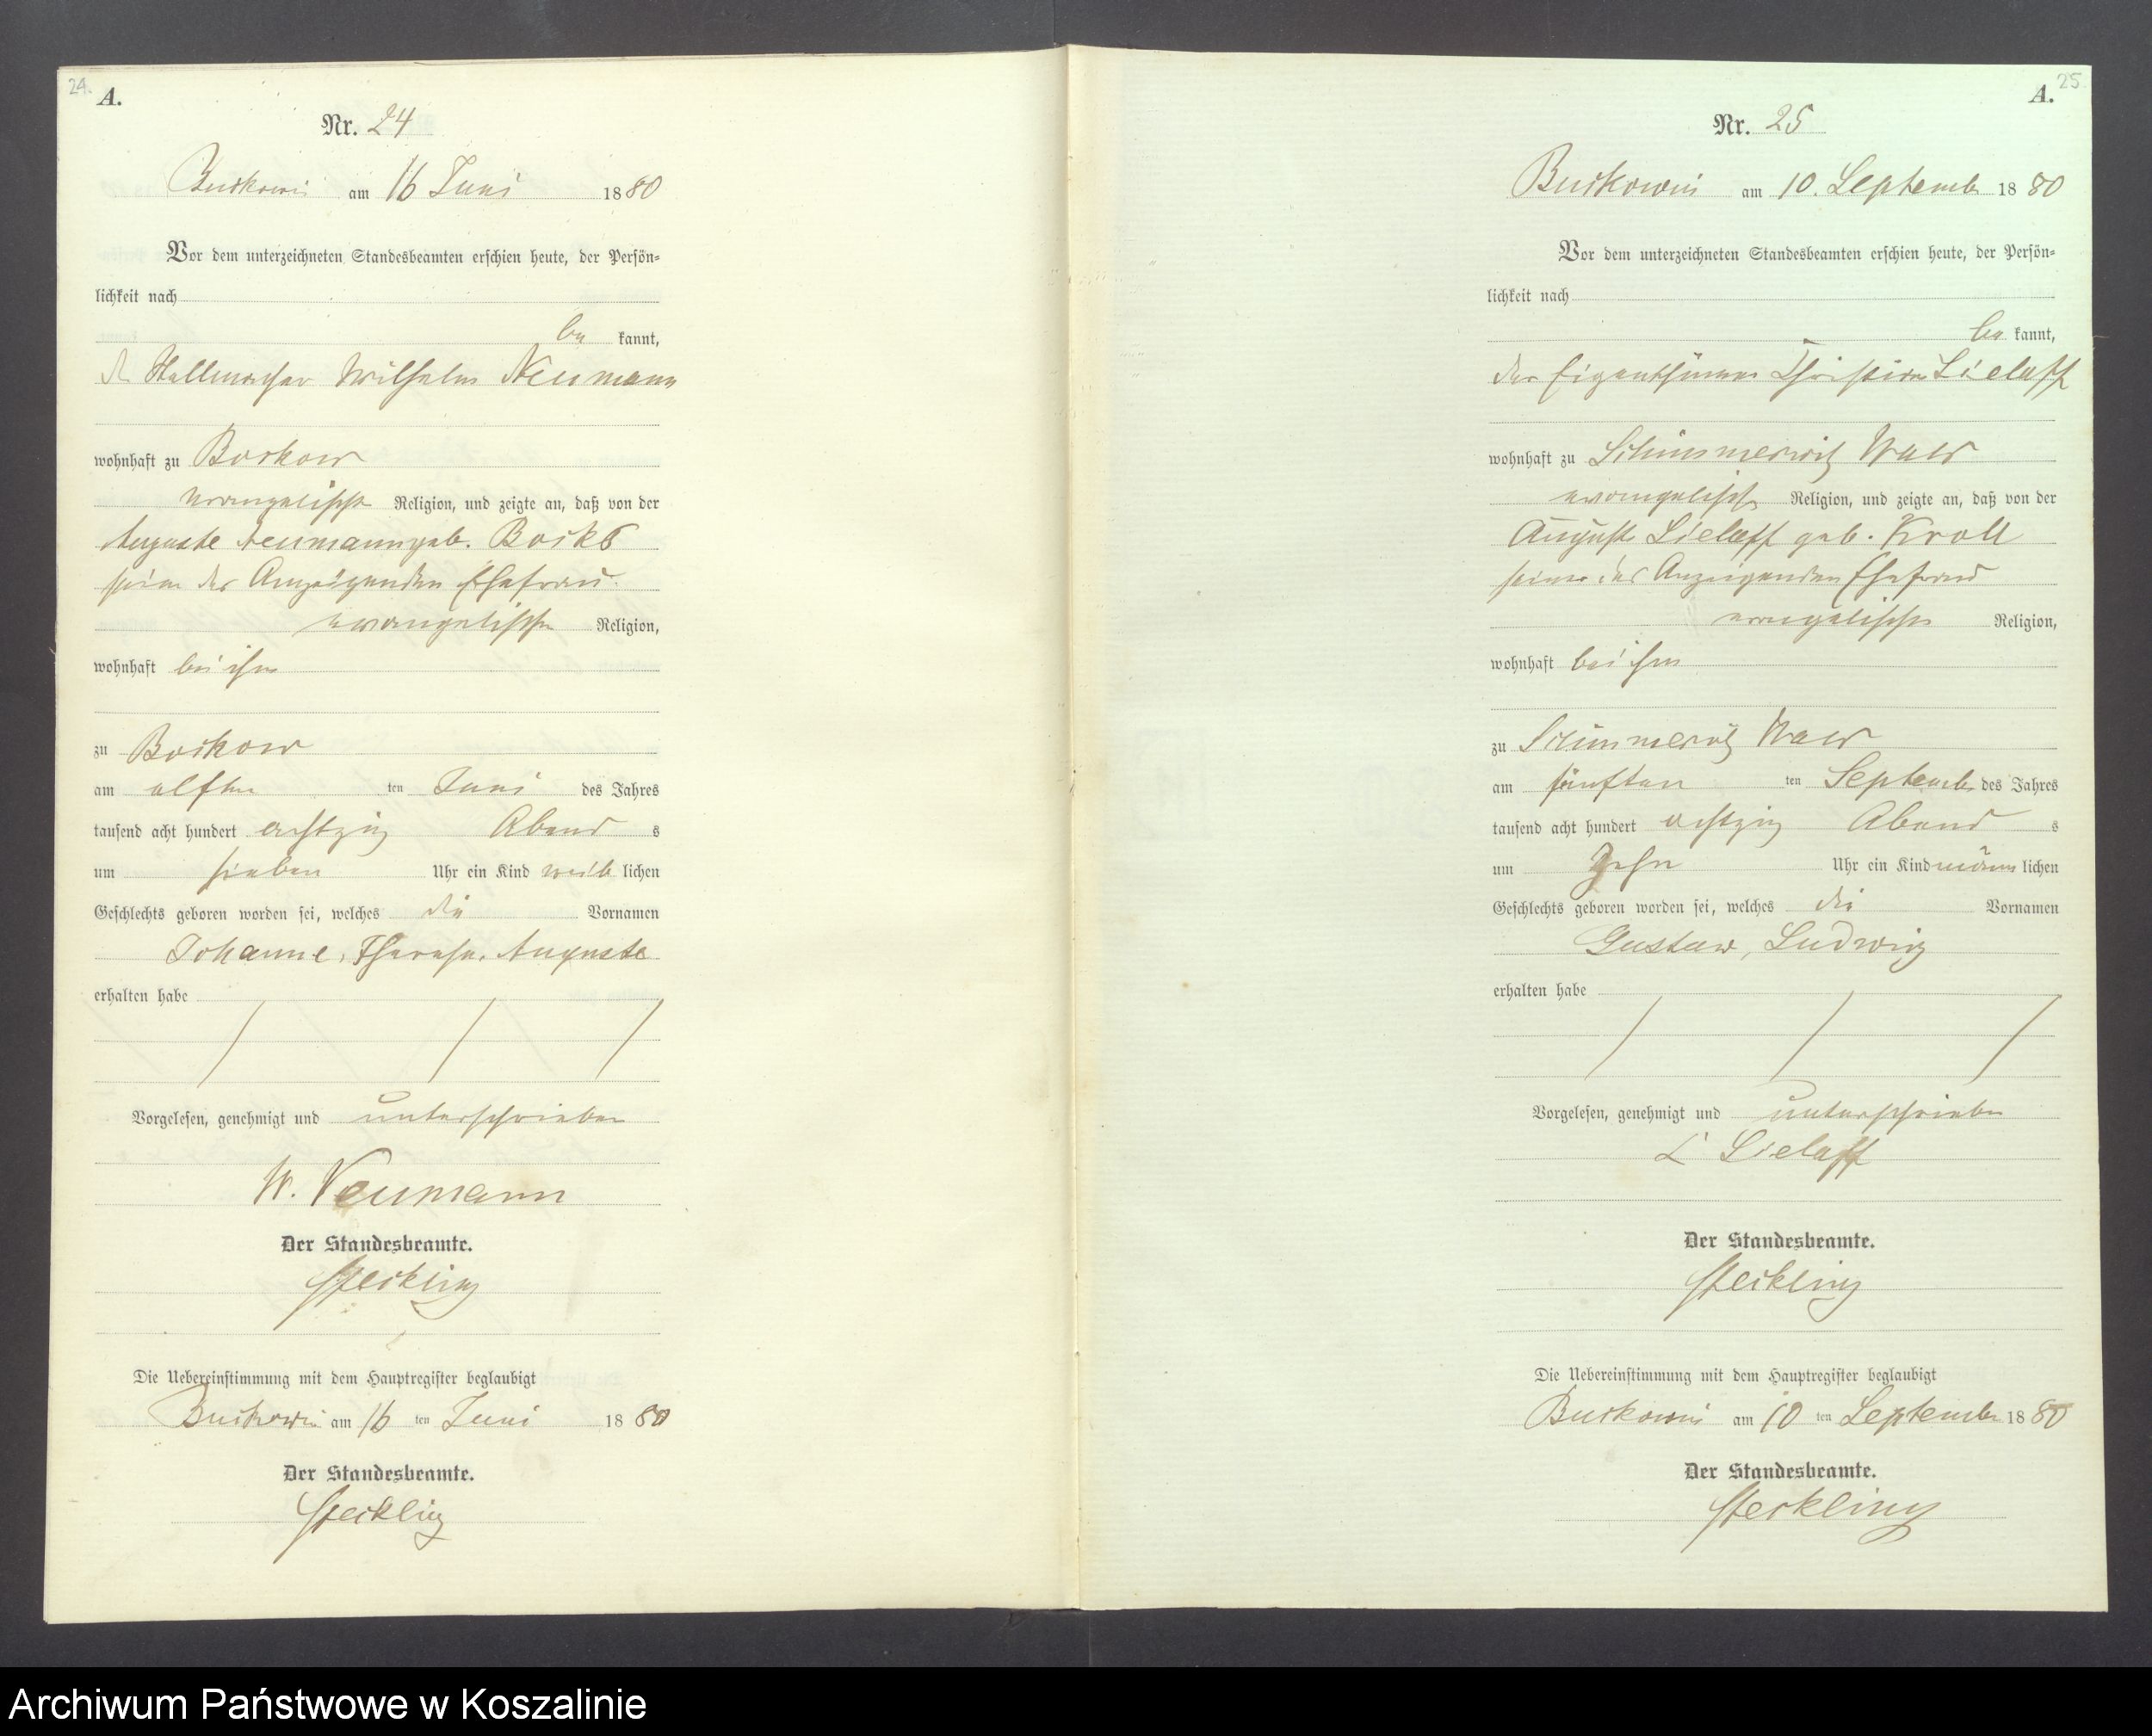 24.
A.
Nr. 24
Buckowin am 16 Juni 1880
Vor dem unterzeichneten Standesbeamten erschien heute, der Persön-
lichkeit nach
be kannt,
Wilhelm Neumann
wohnhaft zu Boskow
evangelische Religion, und zeigte an, daß von der
Auguste Neumann geb.
seine des Anzeigenden Ehefrau
evangelische Religion,
wohnhaft bei ihm
zu Boskow
am elften ten Juni des Jahres
tausend acht hundert achtzig Abend s
um sieben Uhr ein Kind weib lichen
Geschlechts geboren worden sei, welches die Vornamen
Johanne, Therese, Auguste
erhalten habe
Vorgelesen, genehmigt und unterschrieben
W. Neumann
Der Standesbeamte.
Steckling
Die Uebereinstimmung mit dem Hauptregister beglaubigt
Buckowin am 16 ten Juni 1880
Der Standesbeamte.
Steckling
25
A.
Nr. 25
Buckowin am 10. September 1880
Vor dem unterzeichneten Standesbeamten erschien heute, der Persön-
lichkeit nach
be kannt,
der Eigenthümer Lielaff
wohnhaft zu Schimmerwitz Wald
evangelische Religion, und zeigte an, daß von der
Auguste Lielaff geb. Kroll
seiner des Anzeigenden Ehefrau
evangelische Religion,
wohnhaft bei ihm
zu Schimmerwitz Wald
am fünften ten September des Jahres
tausend acht hundert achtzig Abend s
um Zehn Uhr ein Kind männ lichen
Geschlechts geboren worden sei, welches die Vornamen
Gustav, Ludwig
erhalten habe
Vorgelesen, genehmigt und unterschrieben
Lielaff
Der Standesbeamte.
Steckling
Die Uebereinstimmung mit dem Hauptregister beglaubigt
Buckowin am 10 ten September 1880
Der Standesbeamte.
Steckling
Archiwum Państwowe w Koszalinie